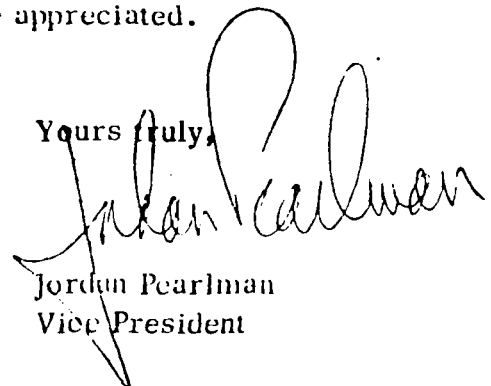 appreciated.
Yours truly,
Jordan Pearlman
Jordan Pearlman
Vice President